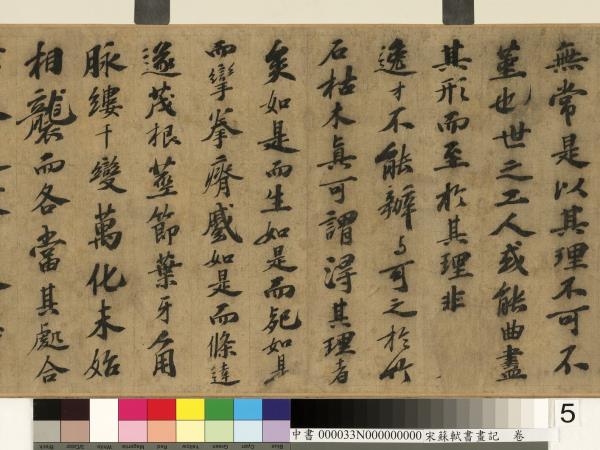 無常是以其理不可不
堇也世之工人或能曲盡
其形而至於其理非
逸才不能辨与可之於竹
石枯木眞可謂得其理者
矣如是而生如是而死如是
而攣拳瘠蹙如是而條達
遂茂根莖節葉牙角
脉縷千變萬化未始
相襲而各當其處合
5
中書 000033N000000000 宋蘇軾書畫記 卷
Black
3/Color
White
Magenta
Red
Yellow
Green
Cyan
Blue